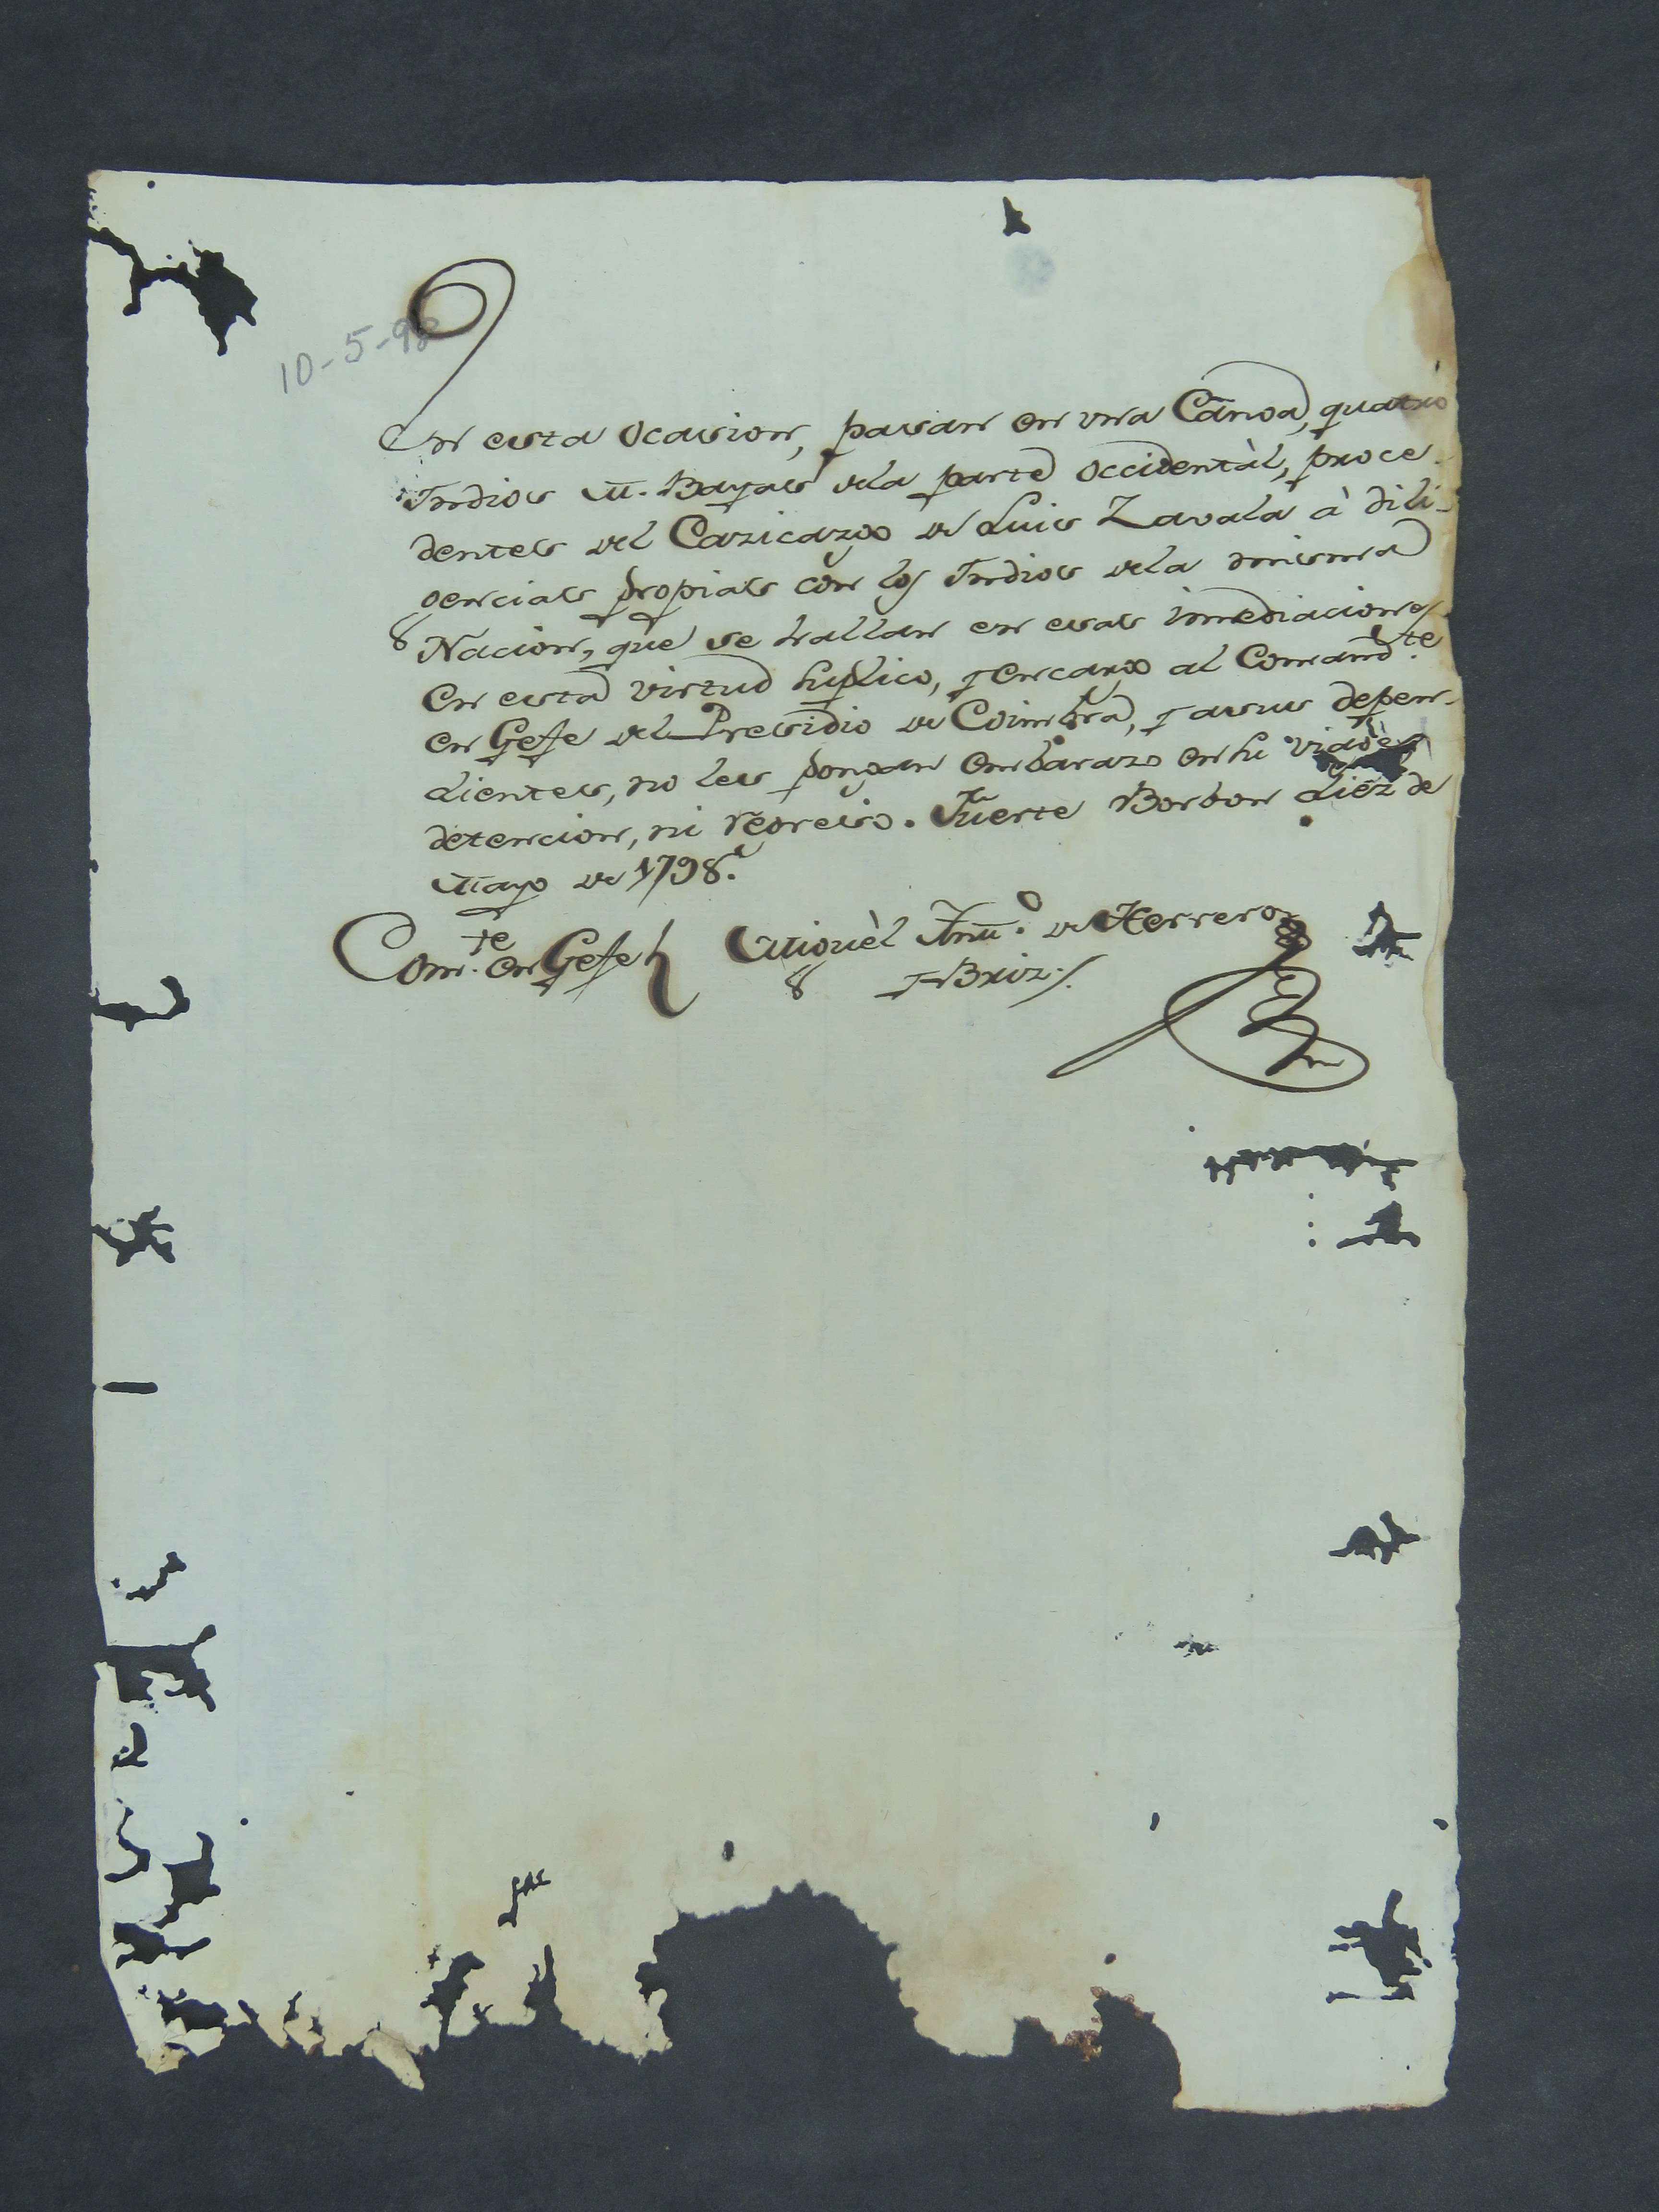 10-5-98
En esta Ocasion, pasan en una Canoa, quatro
Indios M. Bayas dela parte Occidentàl, proce
dentes del Cazicazgo de Luis Zavala à dili-
gencias propias con los Indios dela misma
Nacion, que se hallan en esas inmediaciones
En esta virtud suplico, y encargo al Comand.te
en Gefe del Presidio de Coimbra, y asus depen-
dientes, no les pongan embarazo en su viage
detencion, ni regreso. Fuerte Borbon diez de
Mayo de 1798.
Com.te en Gefe Miguèl Ant.o de Herrero
y Briz